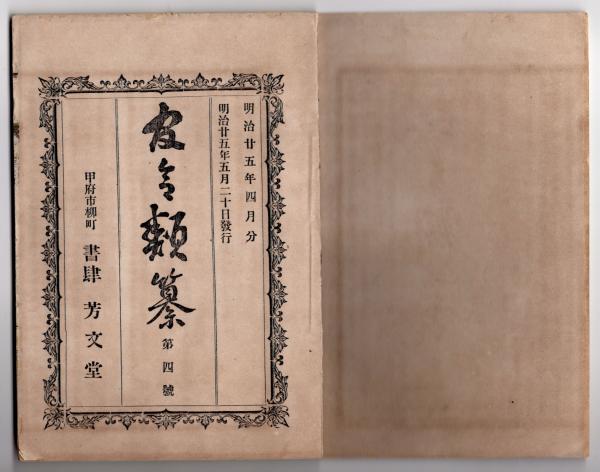 明治廿五年四月分
明治廿五年五月二十日發行
令類纂 第四號
甲府市柳町 書肆 芳文堂